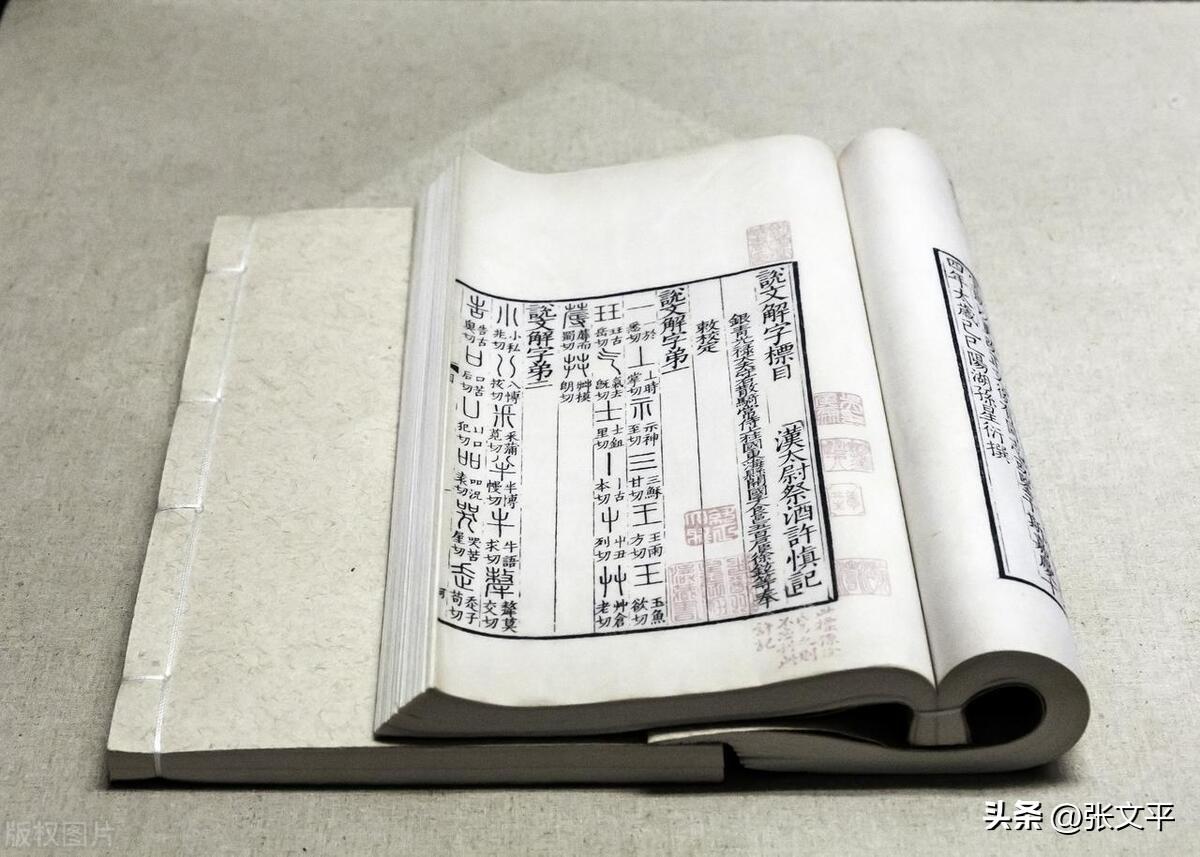 四年太歲己巳陽湖孫星衍撰
說文解字標目 漢太尉祭酒許慎記
銀青光祿大夫守右散騎常侍上柱國東海縣開國子食邑五百戶臣徐鉉等奉
敕校定
說文解字弟一
一 於悉切 丄 丄時掌切 示 示神至切 三 三穌甘切 王 王雨方切 王 玉魚欲切
玨 玨古岳切 气 气去既切 士 士鉏里切 丨 丨古本切 屮 屮丑列切 艸 艸倉老切
蓐 蓐而蜀切 茻 茻模朗切
說文解字弟二
小 小私兆切 八 八博拔切 釆 釆蒲莧切 半 半博幔切 牛 牛語求切 犛 犛莫交切
告 告古奧切 口 口苦后切 凵 凵口犯切 吅 吅況袁切 哭 哭苦屋切 走 走子苟切
版权图片
头条 @张文平